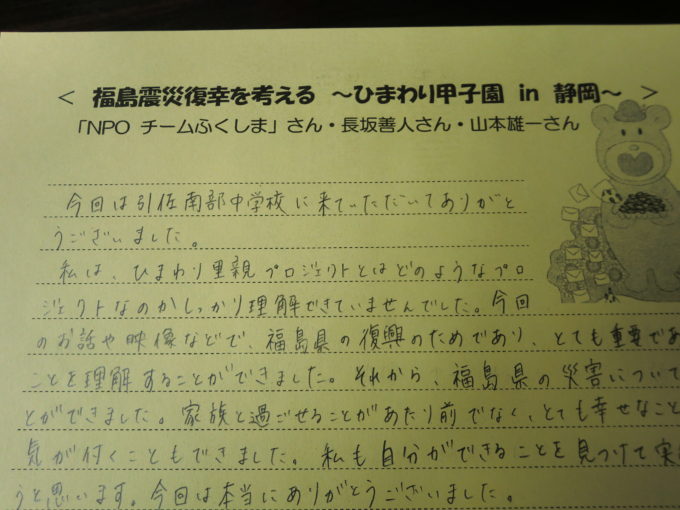 ＜ 福島震災復幸を考える ～ひまわり甲子園 in 静岡～ ＞
「NPO チームふくしま」さん・長坂善人さん・山本雄一さん
今回は引佐南部中学校に来ていただいてありがと
うございました。
私は、ひまわり里親プロジェクトとはどのようなプロ
ジェクトなのかしっかり理解できていませんでした。今回
のお話や映像などで、福島県の復興のためであり、とても重要であ
ことを理解することができました。それから、福島県の災害について
とができました。家族と過ごせることがあたり前でなく、とても幸せなこと
気が付くこともできました。私も自分ができることを見つけて実
うと思います。今回は本当にありがとうございました。